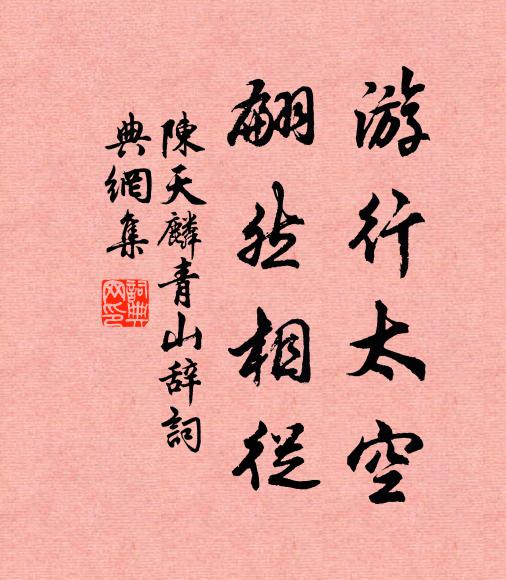 游行太空
翩然相從
陳天麟青山辞詞
典網集
詞典
网印